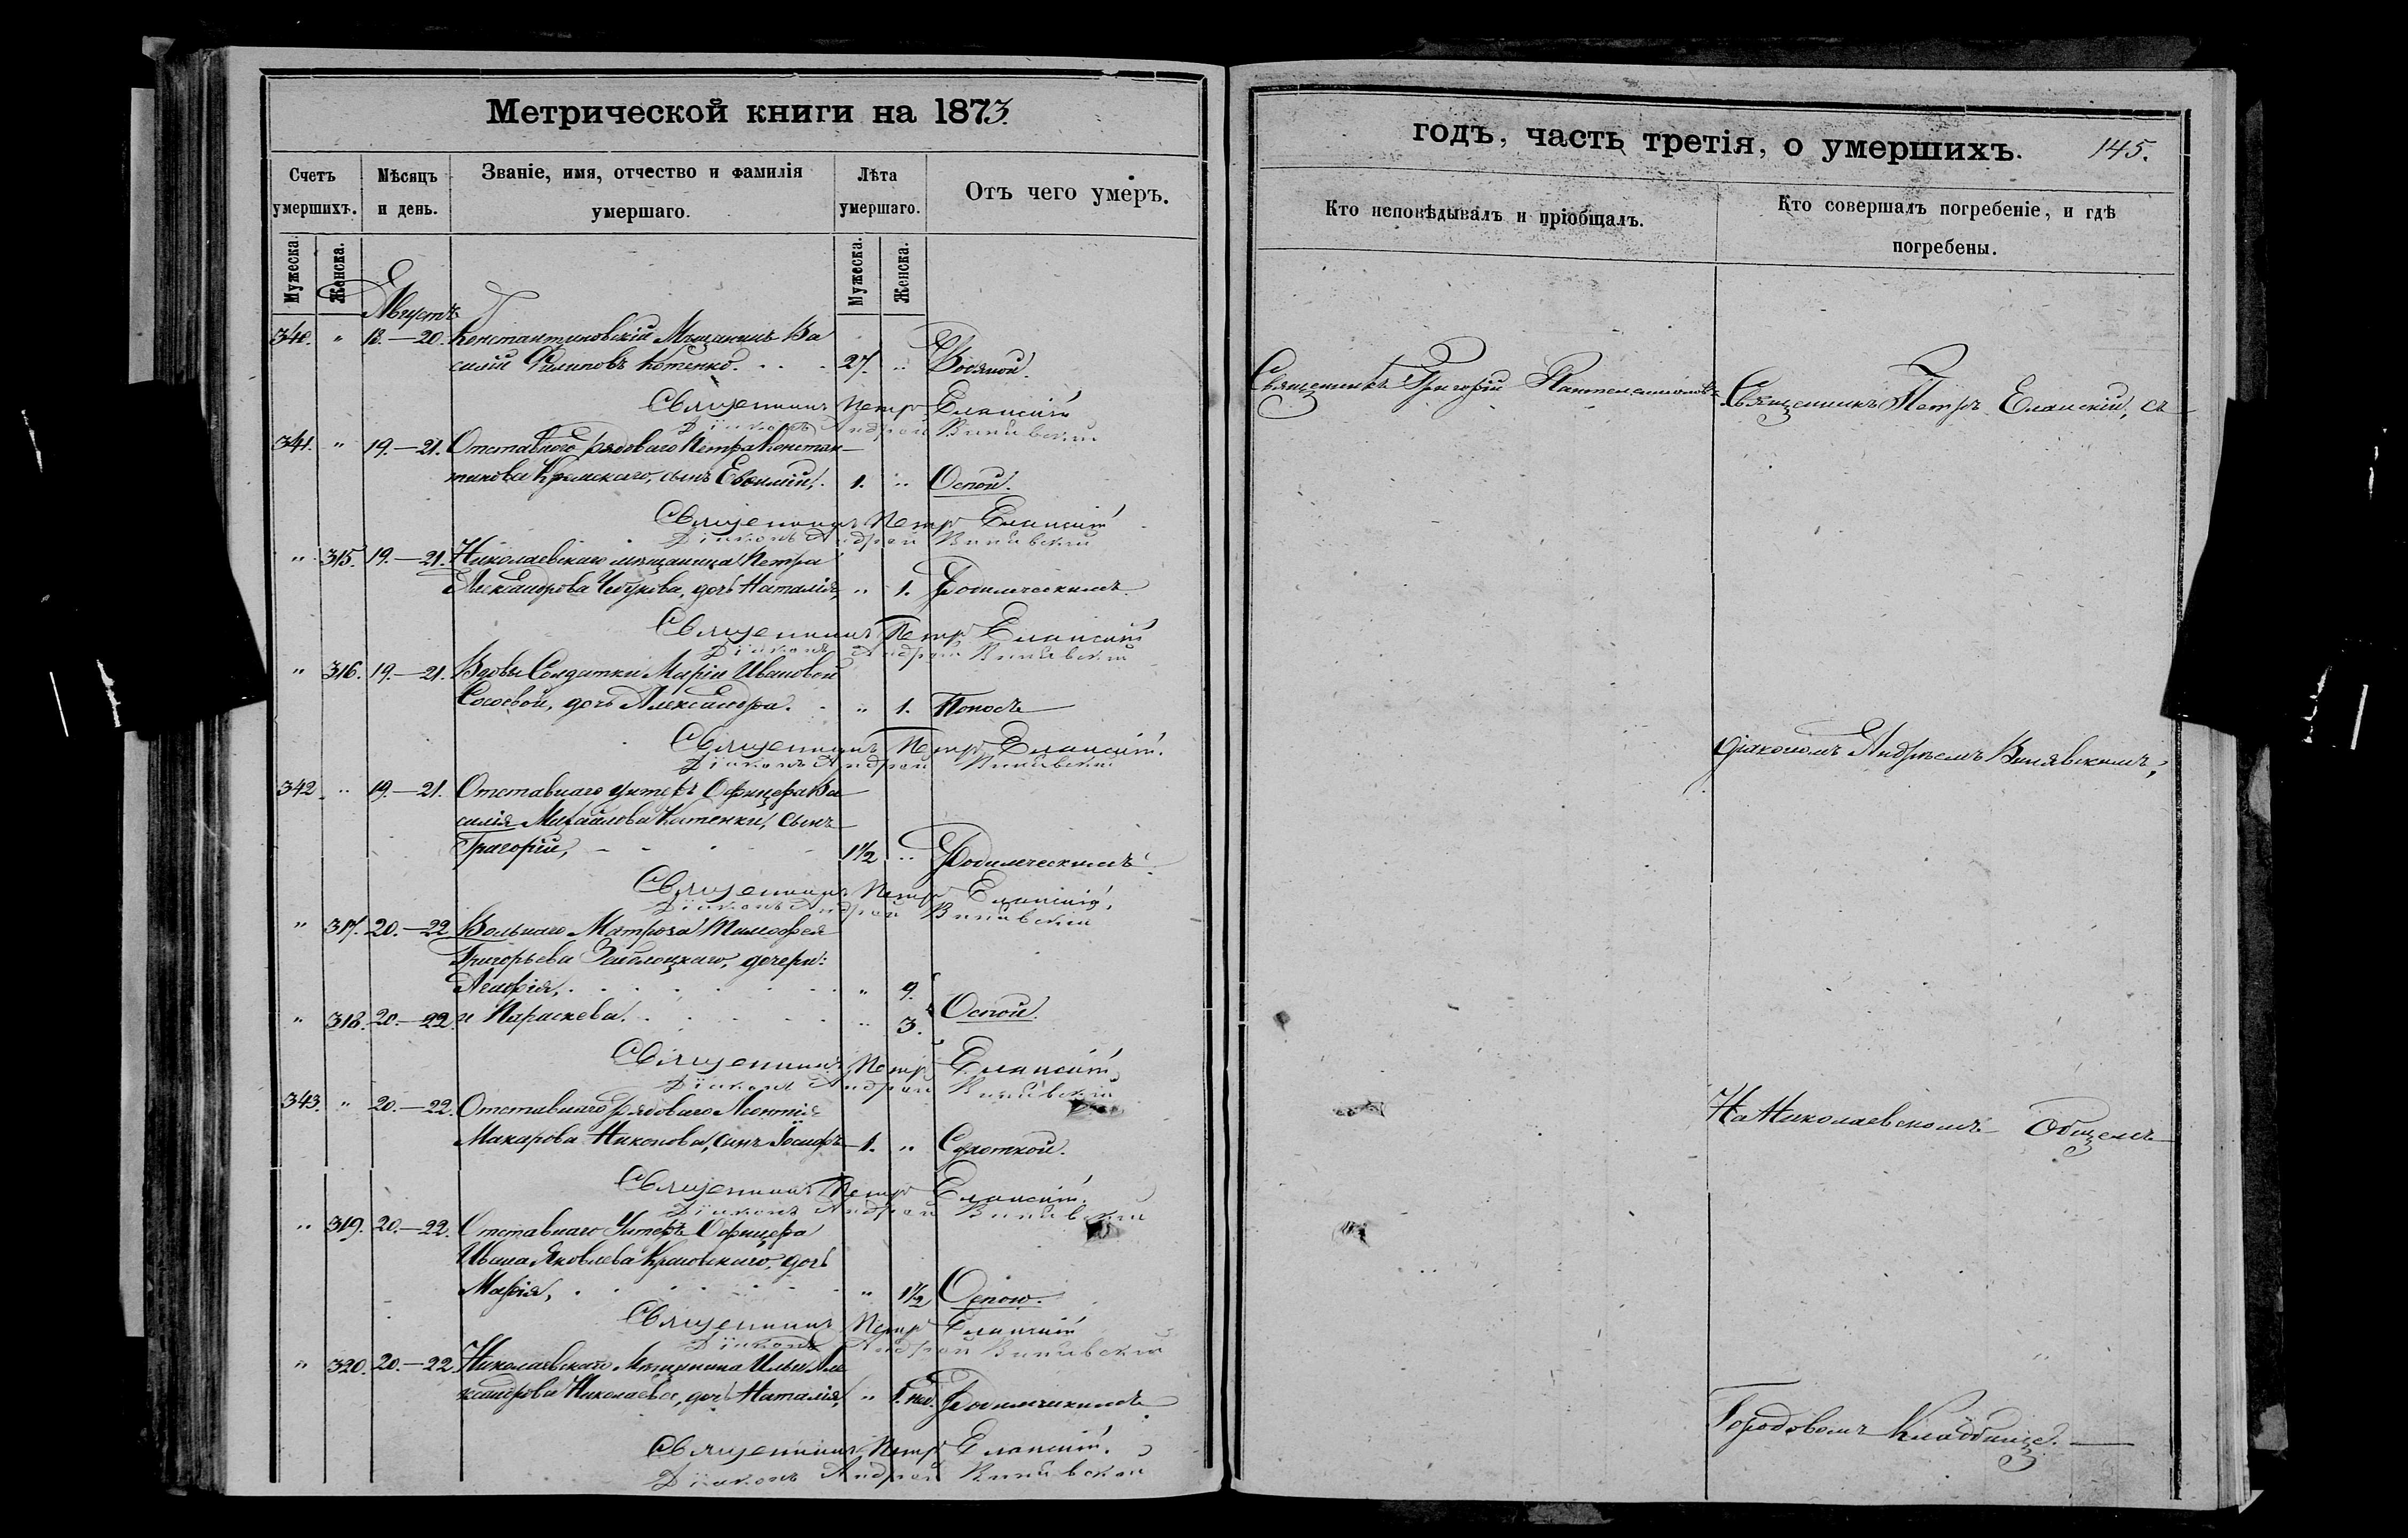 Метрической книги на 1873.
Счетъ умершихъ.
Мѣсяцъ и день.
Званіе, имя, отчество и фамилія умершаго.
Лѣта умершаго.
Отъ чего умеръ.
Мужеска. Женска.
Мужеска. Женска.
Августъ
340. " 18.—20. Константиновскій Мѣщанинъ Ва
силій Филиповъ Котенко. 27. " Водяной.
Священникъ Петръ Еланскій
Діаконъ Андрей Винявскій
341. " 19.—21. Отставного рядоваго Петра Констан-
тинова Кримскаго, сынъ Евфимій, 1. " Оспой.
Священникъ Петръ Еланскій
Діаконъ Андрей Винявскій
" 315. 19.—21. Николаевскаго мѣщанина Петра
Александрова Чебукова, дочь Наталія, " 1. Родимческимъ.
Священникъ Петръ Еланскій
Діаконъ Андрей Винявскій
" 316. 19.—21. Вдовы Солдатки Маріи Ивановой
дочь Александра. " 1. Поносъ
Священникъ Петръ Еланскій.
Діаконъ Андрей Винявскій
342 " 19.—21. Отставнаго Унтеръ Офицера Ва
силія Михайлова Китенки, сынъ
Григорій, 1½ " Родимческимъ.
Священникъ Петръ Еланскій,
Діаконъ Андрей Винявскій
" 317. 20.—22 Вольнаго Матроза Тимофея
Григорьева Заблоцкаго, дочери:
" 9.
" 318. 20.—22. и Параскева. " 3. Оспой.
Священникъ Петръ Еланскій
Діаконъ Андрей Винявскій
343. " 20.—22. Отставнаго рядоваго Леонтія
Макарова Никонова, сынъ Іосифъ 1. " Сухоткой.
Священникъ Петръ Еланскій.
Діаконъ Андрей Винявскій
" 319. 20.—22. Отставнаго Унтеръ Офицера
Ивана Яковлева дочь
Марія, " 1½ Оспою.
Священникъ Петръ Еланскій
Діаконъ Андрей Винявскій
" 320. 20.—22 Николаевскаго Мѣщанина Ильи Але
ксандрова Николаева, дочь Наталія, " 1. нед. Родимчикомъ
Священникъ Петръ Еланскій.
Діаконъ Андрей Винявскій
годъ, часть третія, о умершихъ. 145.
Кто исповѣдывалъ и пріобщалъ.
Кто совершалъ погребеніе, и гдѣ
погребены.
Священникъ Григорій Пантелеимоновъ
Священникъ Петръ Еланскій, съ
діакономъ Андреемъ Винявскимъ,
На Николаевскомъ Общемъ
Городовомъ Кладбищѣ.